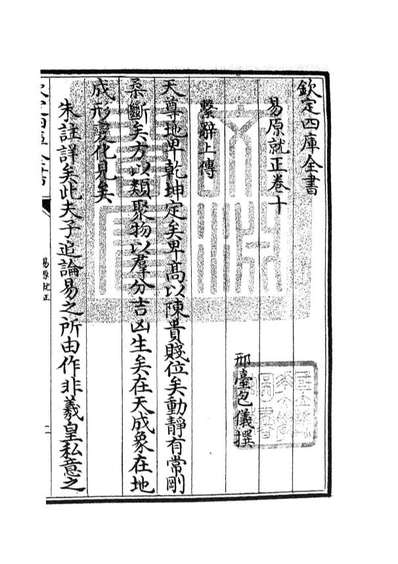 欽定四庫全書
易原就正卷十
邢臺包儀撰
繫辭上傳
天尊地卑乾坤定矣卑高以陳貴賤位矣動靜有常剛
柔斷矣方以類聚物以羣分吉凶生矣在天成象在地
成形變化見矣
朱註詳矣此夫子追論易之所由作非羲皇私意之
易原就正